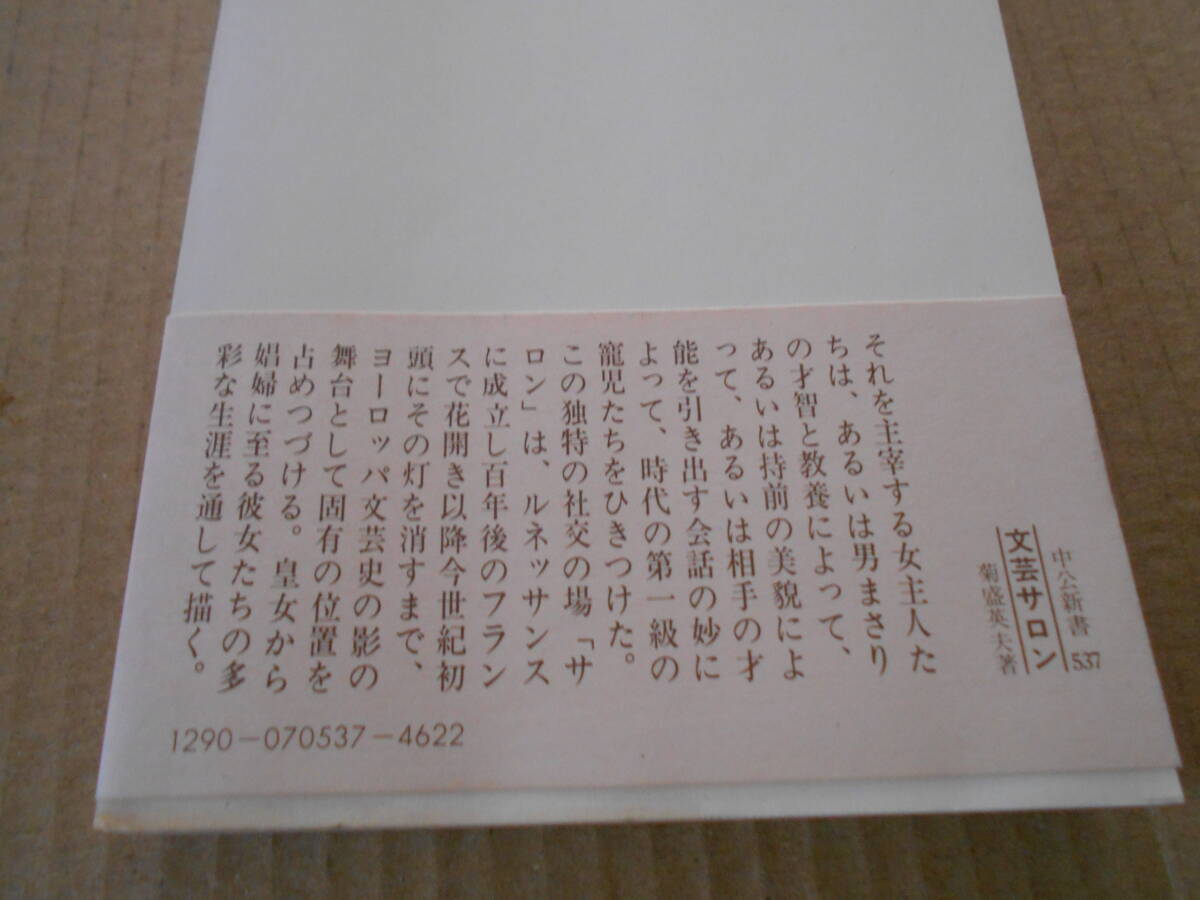 中公新書 537
文芸サロン
菊盛英夫著
それを主宰する女主人た
ちは、あるいは男まさり
の才智と教養によって、
あるいは持前の美貌によ
って、あるいは相手の才
能を引き出す会話の妙に
よって、時代の第一級の
寵児たちをひきつけた。
この独特の社交の場「サ
ロン」は、ルネッサンス
に成立し百年後のフラン
スで花開き以降今世紀初
頭にその灯を消すまで、
ヨーロッパ文芸史の影の
舞台として固有の位置を
占めつづける。皇女から
娼婦に至る彼女たちの多
彩な生涯を通して描く。
1290-070537-4622